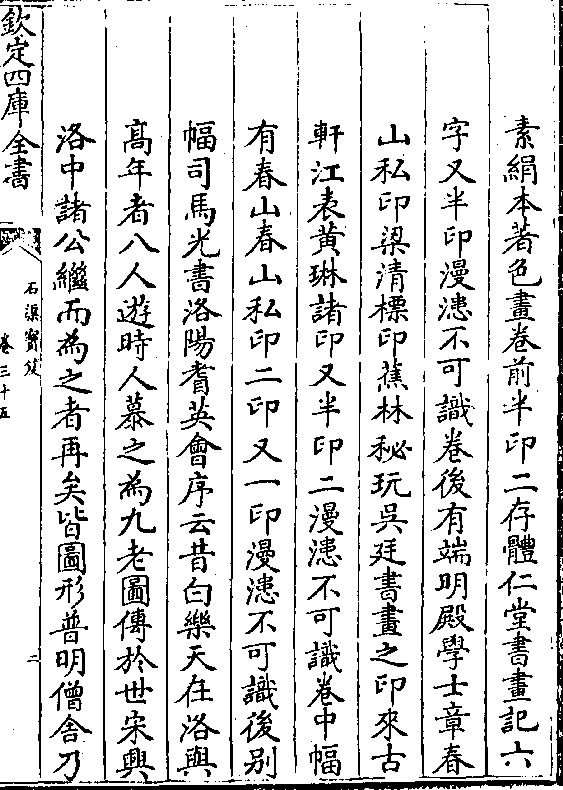 素絹本著色畫卷前半印二存體仁堂書畫記六
字又半印漫漶不可識卷後有端明殿學士章春
山私印梁清標印蕉林秘玩吳廷書畫之印來古
軒江表黃琳諸印又半印二漫漶不可識卷中幅
有春山春山私印二印又一印漫漶不可識後别
幅司馬光書洛陽耆英會序云昔白樂天在洛與
髙年者八人遊時人慕之為九老圖傳於世宋興
洛中諸公繼而為之者再矣皆圖形普明僧舍乃
欽定四庫全書
石渠寳笈
卷三十五
二